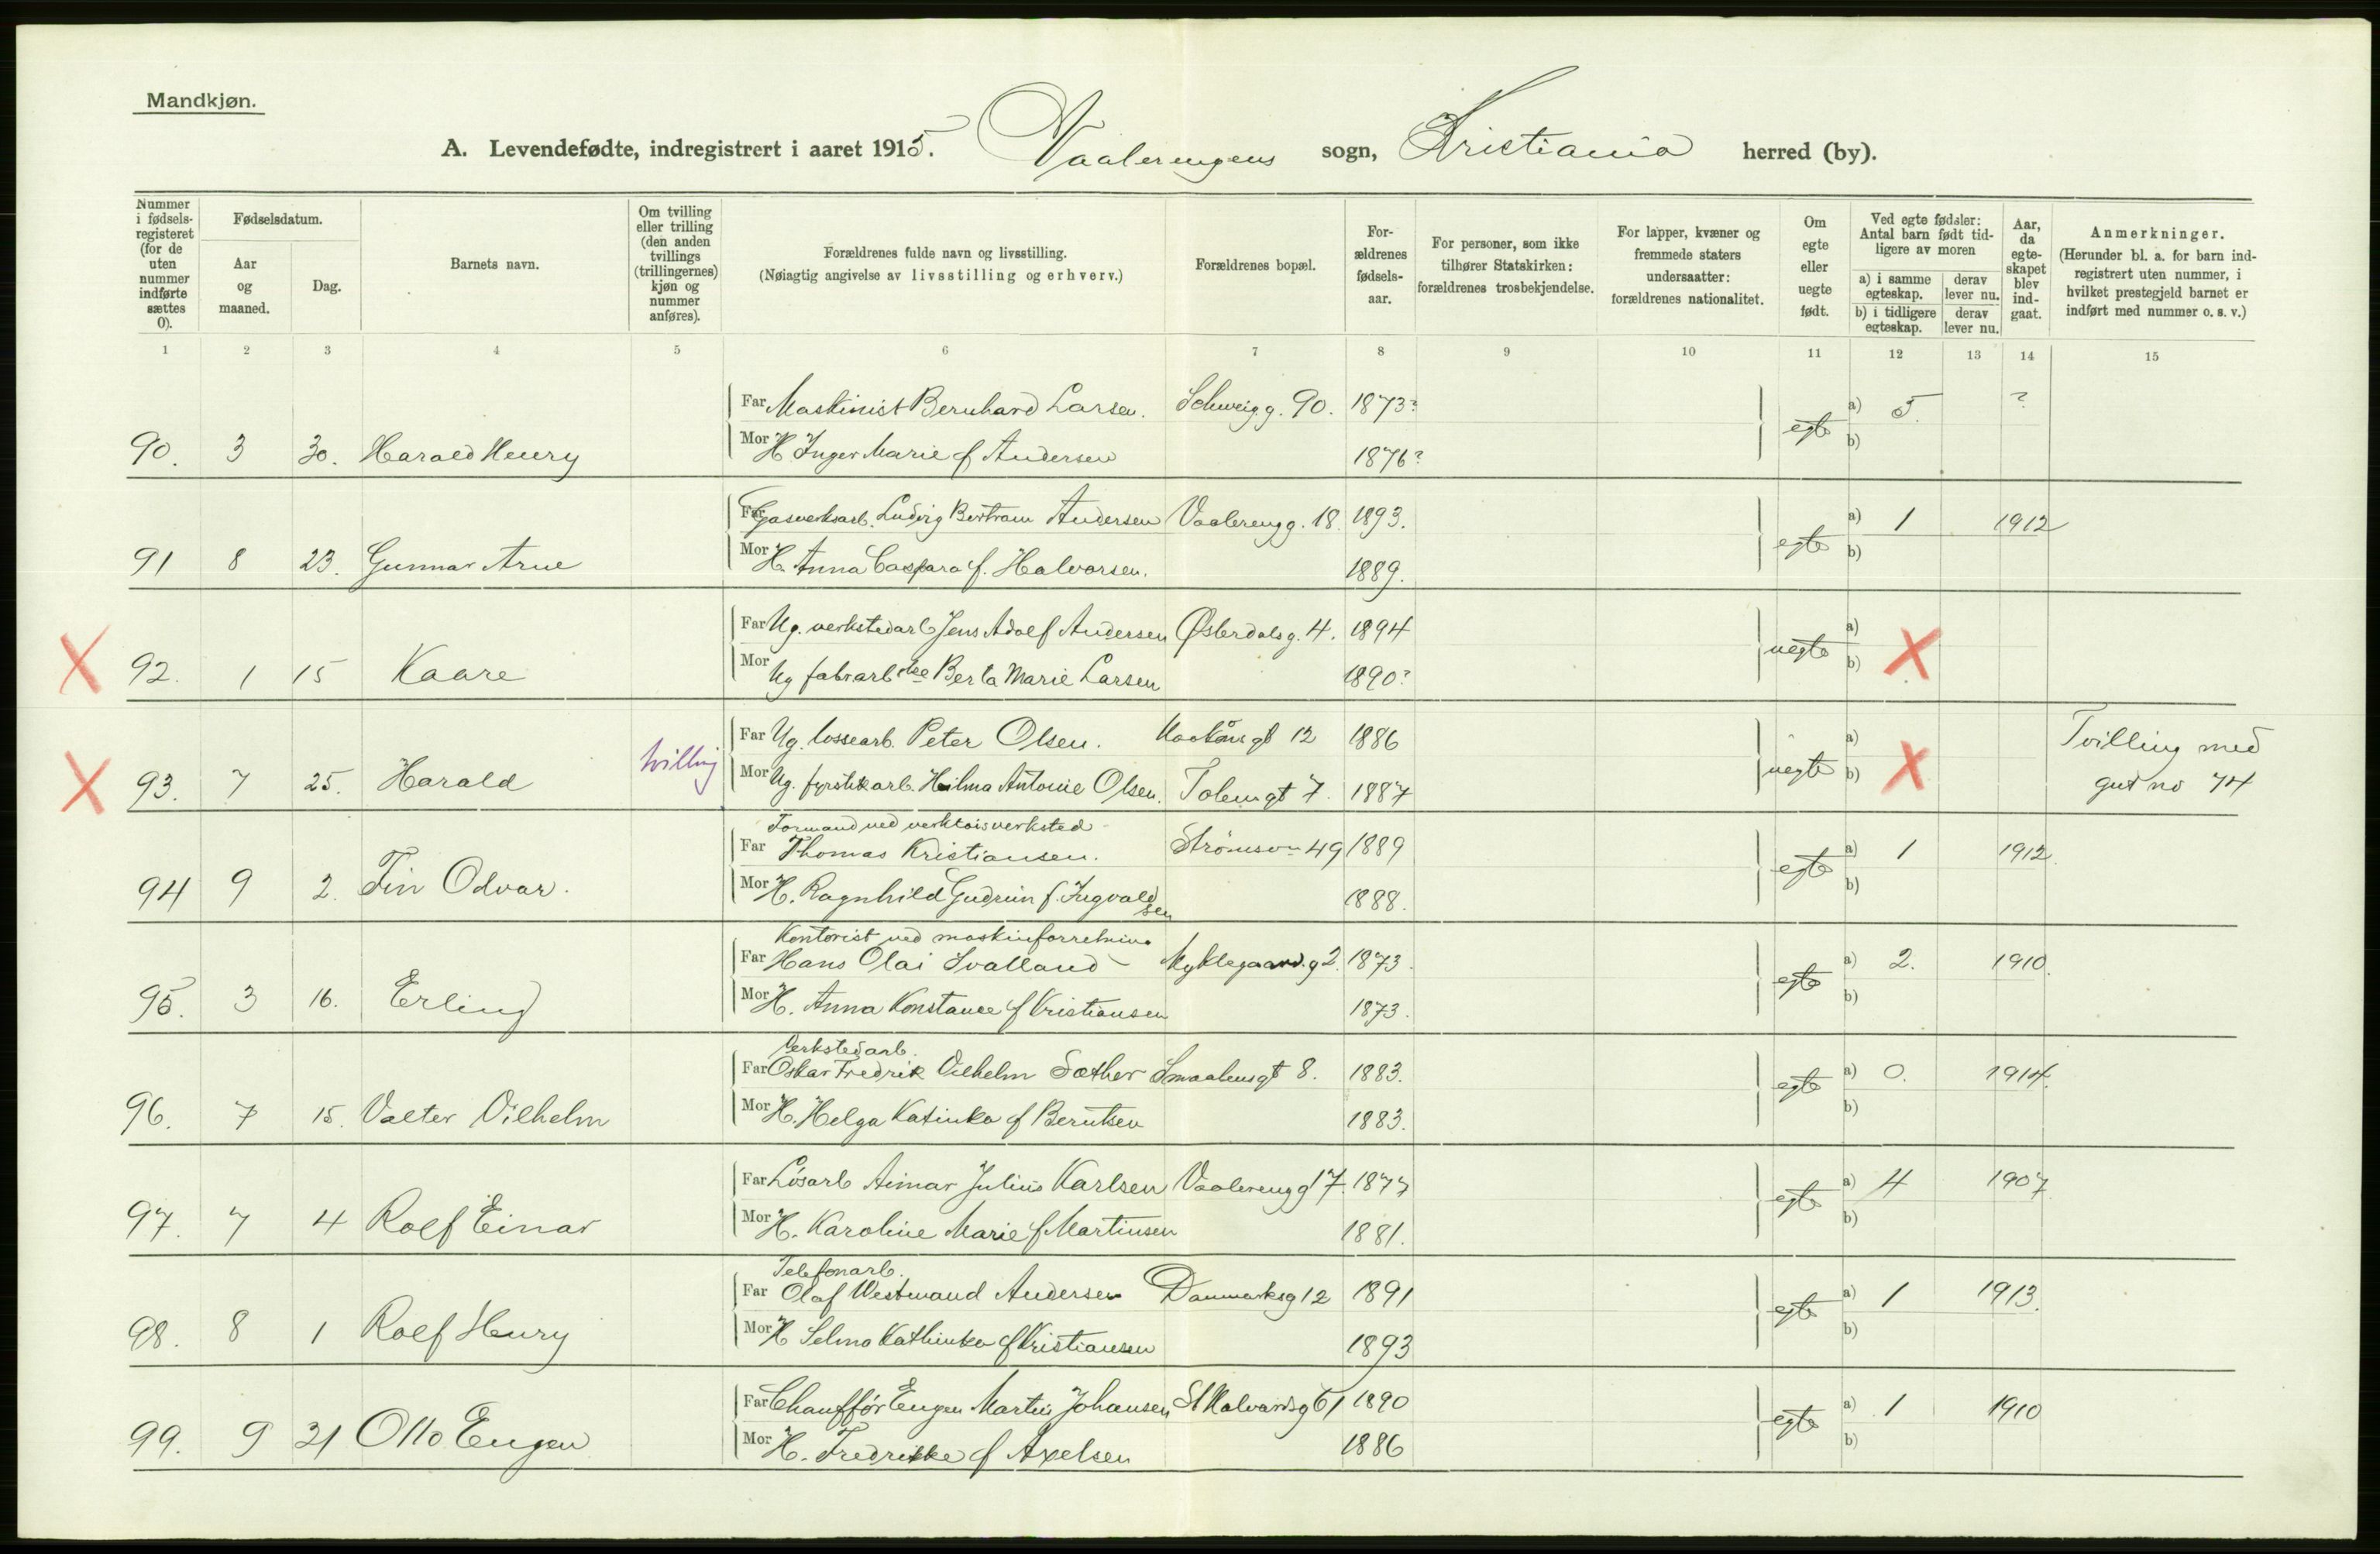 Mandkjøn.
A. Levendefødte, indregistrert i aaret 1915. Vaalerengens sogn, Kristiania herred (by).
Nummer i fødsels-registeret (for de uten nummer indførte sættes 0).
Fødselsdatum.
Aar og maaned.
Dag.
Barnets navn.
Om tvilling eller trilling (den anden tvillings (trillingernes) kjøn og nummer anføres).
Forældrenes fulde navn og livsstilling.
(Nøiagtig angivelse av livsstilling og erhverv.)
Forældrenes bopæl.
For-ældrenes fødsels-aar.
For personer, som ikke tilhører Statskirken: forældrenes trosbekjendelse.
For lapper, kvæner og fremmede staters undersaatter: forældrenes nationalitet.
Om egte eller uegte født.
Ved egte fødsler: Antal barn født tid-ligere av moren
a) i samme egteskap. derav lever nu.
b) i tidligere egteskap. derav lever nu.
Aar, da egte-skapet blev ind-gaat.
Anmerkninger.
(Herunder bl. a. for barn ind-registrert uten nummer, i hvilket prestegjeld barnet er indført med nummer o. s. v.)
1 2 3 4 5 6 7 8 9 10 11 12 13 14 15
Far Maskinist Bernhard Larsen. Schweigg. 90. 1873? a) 5. ?
90. 3 30. Harald Henry Mor H. Inger Marie f Andersen 1876? egte b)
Far Gasverksarb. Ludvig Bertram Andersen Vaalerengg. 18. 1893. a) 1 1912
91 8 23. Gunnar Arne Mor H. Anna Caspara f. Halvorsen. 1889. egte b)
Far Ug. verkstedarb Jens Adolf Andersen Østerdalsg. 4. 1894 a)
X 92. 1 15 Kaare Mor Ug fabrarbske Berta Marie Larsen 1890? uegte b) X
Far Ug. lossearb. Peter Olsen. Haakonsgt 12 1886 a) Tvilling med
X 93. 7 25. Harald tvilling Mor Ug. fyrstikarb. Hilma Antonie Olsen. Tolengt 7. 1887 uegte b) X gut no 74
Formand ved verktøisverksted
Far Thomas Kristiansen. Strømsvn 49 1889 a) 1 1912.
94 9 2. Fin Odvar. Mor H. Ragnhild Gudrun f. Ingvaldsen 1888. egte b)
Kontorist ved maskinforretning
Far Hans Olai Svalland Myklegaardg 2. 1873. a) 2. 1910.
95. 3 16. Erling Mor H. Anna Konstance f Kristiansen 1873. egte b)
Verkstedarb.
Far Oskar Fredrik Vilhelm Sæther Smaalensgt 8. 1883. a) 0. 1914.
96. 7 15. Valter Vilhelm Mor H. Helga Katinka f Berntsen 1883. egte b)
Far Løsarb Aimar Julius Karlsen Vaalerengg 17. 1877 a) 4 1907
97. 7 4 Rolf Einar Mor H. Karoline Marie f Martinsen 1881. egte b)
Telefonarb.
Far Olaf Westmand Andersen Danmarksg 12 1891 a) 1 1913.
98. 8 1 Rolf Henry Mor H Selma Kathinka f Kristiansen 1893 egte b)
Far Chauffør Eugen Martin Johansen St Halvardsg 61 1890 a) 1 1910
99. 9 21 Otto Eugen Mor H. Fredrikke f Axelsen 1886 egte b)